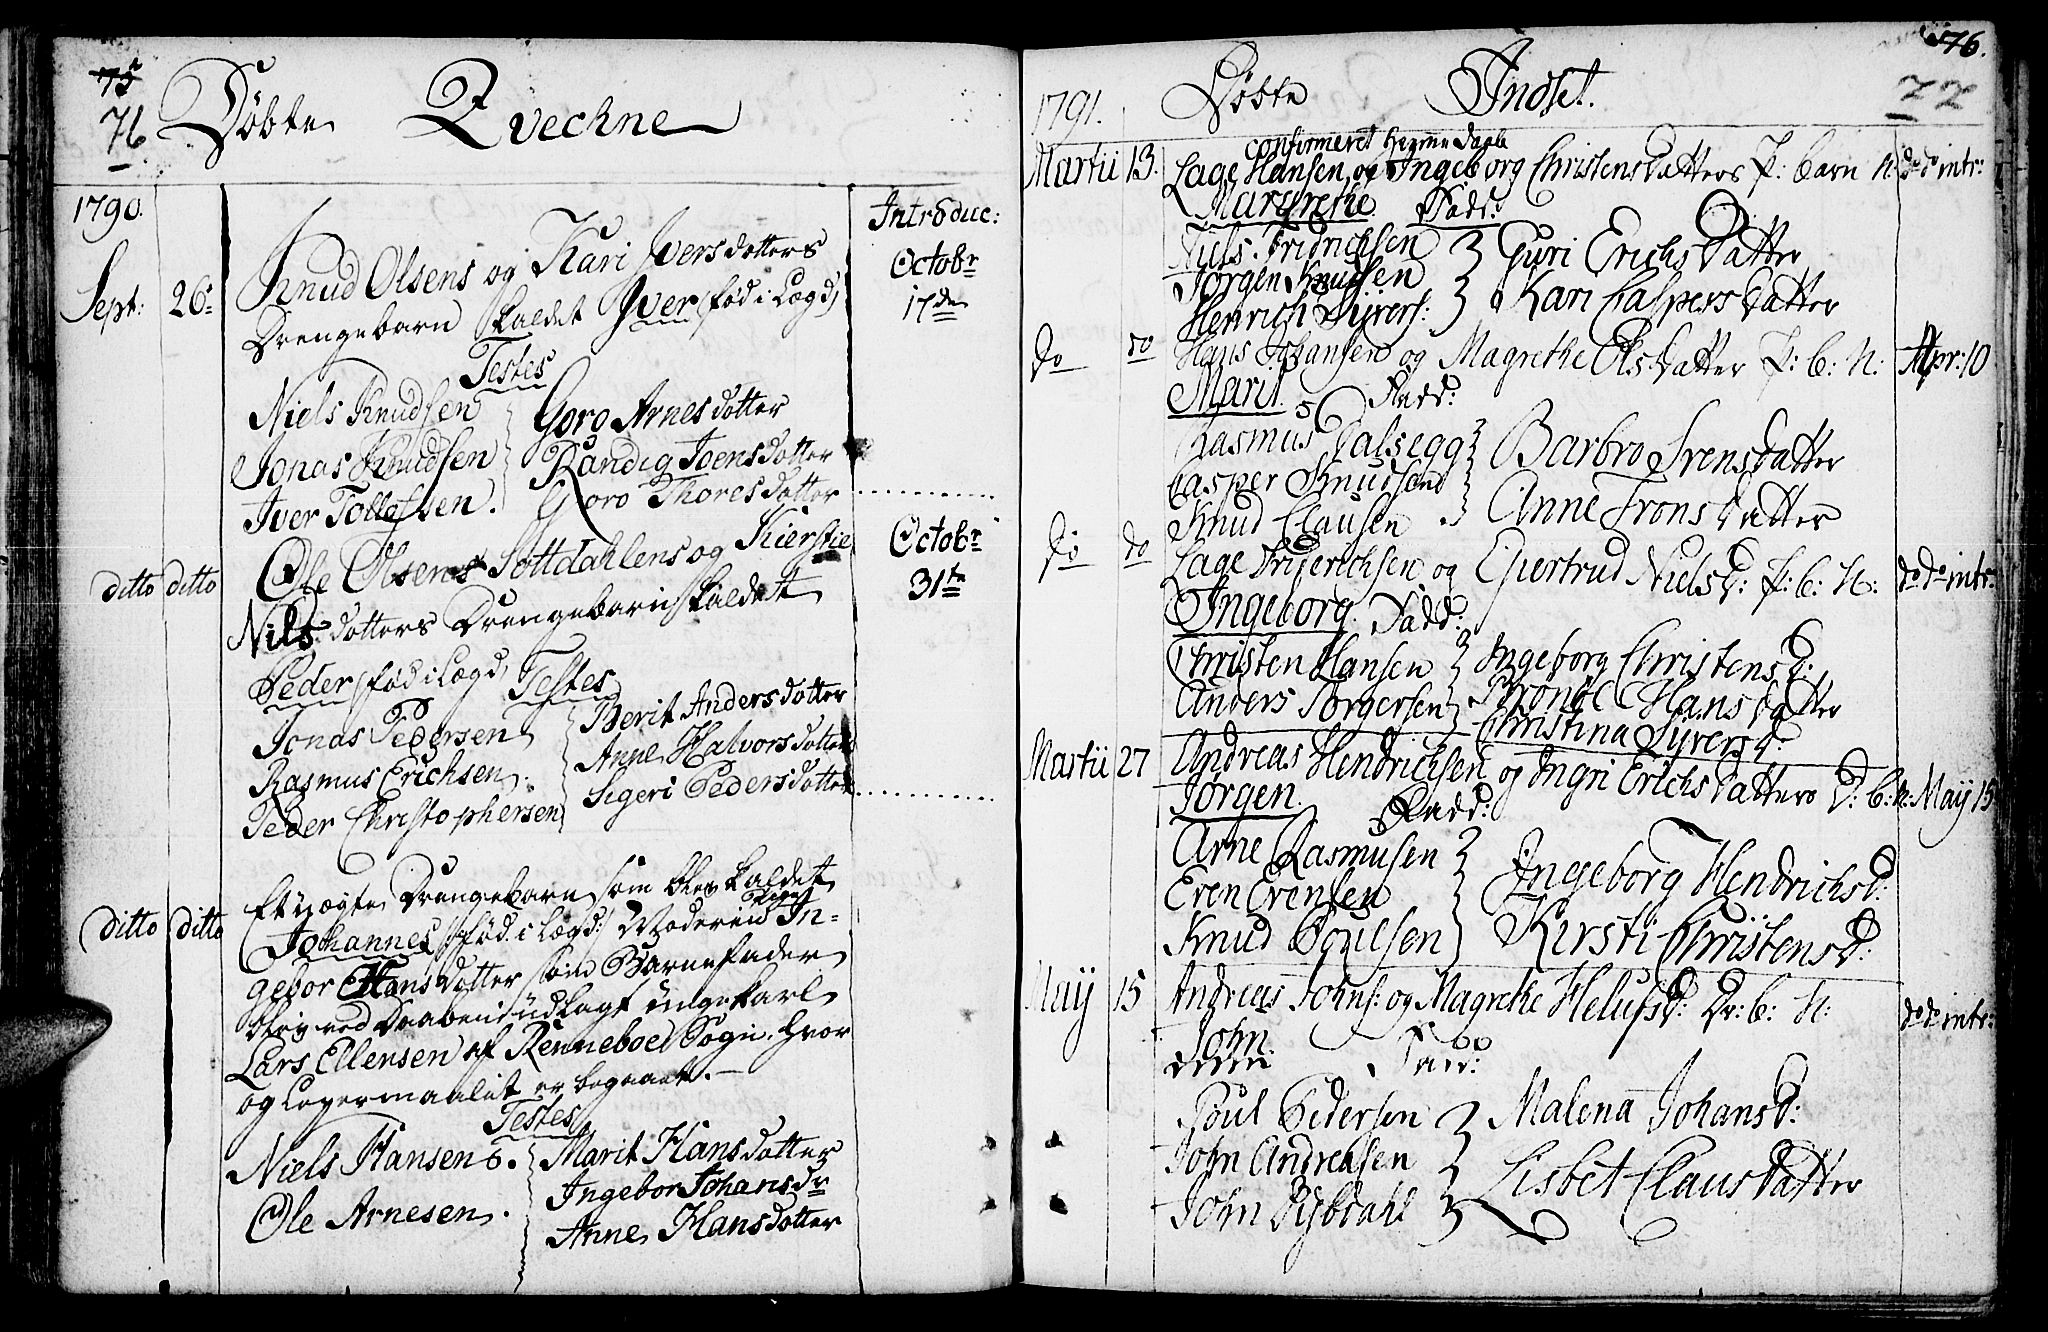 75
76
Døbte Qvechne
1790.
Introduc:
Sept: 26:
Knud Olsens og Kari Iversdotters
Drengebarn kaldet Iver (fød i Lægd)
Octobr
17de
Testes
Niels Knudsen
Jonas Knudsen
Iver Tollefsen.
Goro Arnesdotter
Randig Joensdotter
Goro Thoresdotter
ditto ditto
Ole Olsens Sottdahlens og Kierstie
Nils dotters Drengebarn kaldet
Peder (fød i Lægd)
Octobr
31te
Testes
Jonas Pedersen
Rasmus Erichsen.
Peder Christophersen
Berit Andersdotter
Anne Halvorsdotter
Sigeri Pedersdotter
ditto ditto
Et uægte Drengebarn som blev kaldet
Johannes (fød i Lægd:) Moderen In-
gebor Hansdotter som Barnefader
blev ved Daaben udlagt ungekarl
Lars Ellensen af Renneboe Sogn, hvor
og Leyermaalet er begaaet.
Testes
Niels Hansen.
Ole Arnesen.
Marit Hansdotter
Ingebor Johansdr
Anne Hansdotter
76.
77
1791. Døbte Indset.
confirmeret hiemme Daab
Martii 13. Lage Hansen og Ingeborg Christensdatters P: barn N: do do intr:
Margrethe. Fadd:
Niels Fridrichsen
Jørgen Knudsen
Henrich Siversf:
Guri Erichsdatter
Kari Caspersdatter
do do Hans Johansen og Magrethe Olsdatter P: b: N: Apr: 10
Marit. Fadd:
Rasmus Dalsegg
Casper Knudsen
Knud Clausen
Barbro Svensdatter
Anne Tronsdatter
do do Lage Friderichsen og Giertrud Nielsd: P: b: N: do do intr:
Ingeborg. Fadd:
Christen Hansen
Anders Jørgersen
Ingeborg Christensd:
Brønøl Hansdatter
Christina Siversd:
Martii 27 Andreas Hendrichsen og Ingri Erichsdatters D: b: N: Maij 15
Jørgen. Fadd:
Arne Rasmusen
Even Evensen
Knud Poulsen
Ingeborg Hendrichsd:
Kirsti Christensd:
Maij 15 Andreas Johnf: og Magrethe Helufsd: Dr: b: N: do do intr:
John. Fadd:
Poul Pedersen
John Andreasen
John Bybdahl
Malena Johansd:
Lisbet Clausdatter